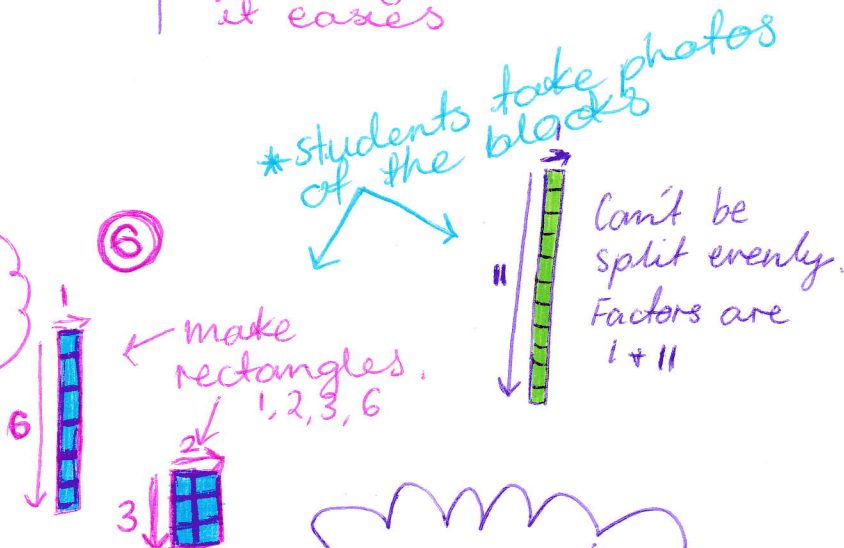 it easies
*students take photos
of the blocks
6
1
6
make
rectangles.
1, 2, 3, 6
2
3
1
11
Can't be
split evenly.
Factors are
1 + 11